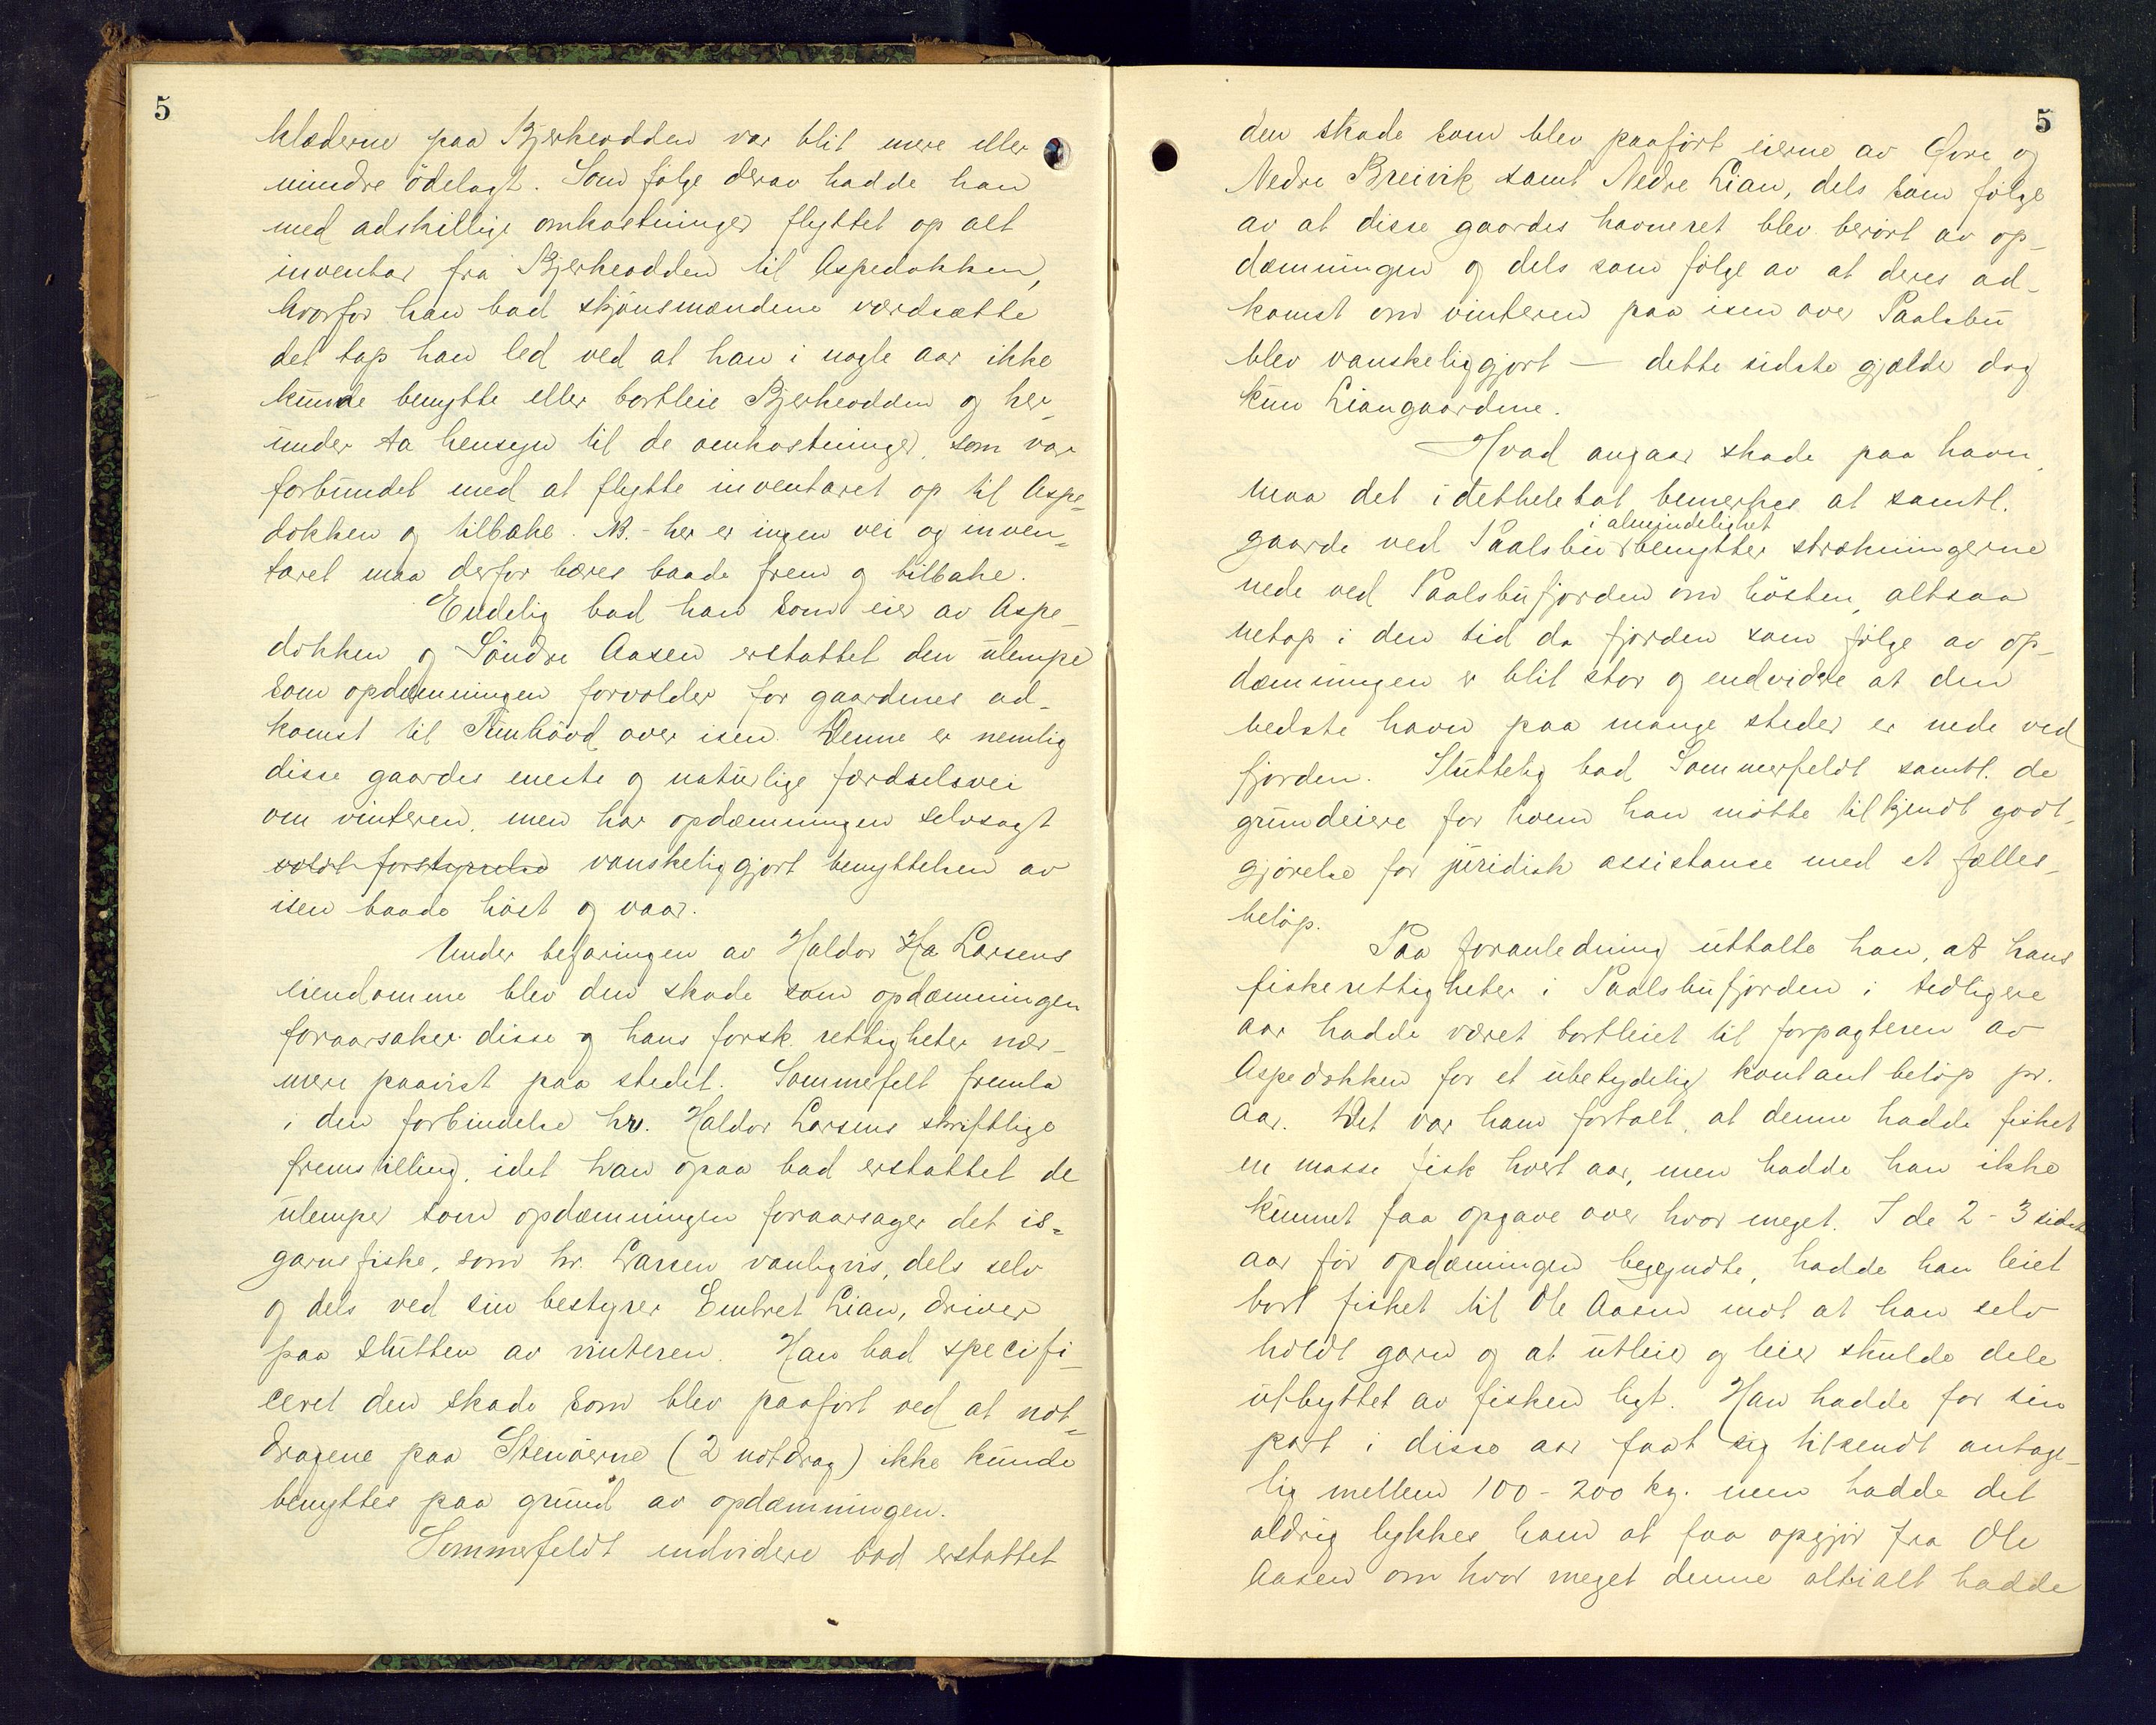 5
klæderne paa Bjerkeodden var blit mere eller
mindre ödelagt. Som følge derav hadde han
med adskillige omkostninger flyttet op alt
inventar fra Bjerkeodden til Aspedokken,
hvorfor han bad skjønsmændene værdsætte
det tap han led ved at han i nogle aar ikke
kunde benytte eller bortleie Bjerkeodden og her-
under ta hensyn til de omkostninger, som var
forbundet med at flytte inventaret op til Aspe-
dokken og tilbake. NB.- her er ingen vei og inven-
taret maa derfor bæres baade frem og tilbake.
Endelig bad han som eier av Aspe-
dokken og Søndre Aasen erstattet den ulempe
som opdæmningen forvolder for gaardenes ad-
komst til Tunhövd over isen. Denne er nemlig
disse gaardes eneste og naturlige færdselsvei
om vinteren, men har opdæmningen selvsagt
voldt forstyrrelse vanskeliggjort benyttelsen av
isen baade høst og vaar.
Under befaringen av Haldor Ha Larsens
eiendomme blev den skade som opdæmningen
foraarsaker disse og hans forsk. rettigheter nær-
mere paavist paa stedet. Sommerfelt fremla
i den forbindelse hr. Haldor Larsens skriftlige
fremstilling, idet han ogsaa bad erstattet de
ulemper som opdæmningen foraarsager det is-
garnsfiske, som hr. Larsen vanligvis, dels selv
og dels ved sin bestyrer Embret Lian, driver
paa slutten av vinteren. Han bad specifi-
ceret den skade som blev paaført ved at not-
dragene paa Stenöerne (2 notdrag) ikke kunde
benyttes paa grund av opdæmningen.
Sommerfeldt endvidere bad erstattet
5
den skade som blev paaført eierne av Øvre og
Nedre Breivik samt Nedre Lian, dels som følge
av at disse gaardes havneret blev berørt av op-
dæmningen og dels som følge av at deres ad-
komst om vinteren paa isen over Paalsbu
blev vanskeliggjort – dette sidste gjælder dog
kun Liangaardene.
Hvad angaar skade paa havn,
maa det i detheletat bemerkes at samtl.
i almindelighet
gaarde ved Paalsbu benytter strækningerne
nede ved Paalsbufjorden om hösten, altsaa
netop i den tid da fjorden som følge av op-
dæmningen er blit stor og endvidere at den
bedste havn paa mange steder er nede ved
fjorden. Sluttelig bad Sommerfeldt samtl. de
grundeiere for hvem han møtte tilkjendt godt-
gjørelse for juridisk assistanse med et fælles-
beløp.
Paa foranledning uttalte han, at hans
fiskerettigheter i Paalsbufjorden i tidligere
aar hadde været bortleiet til forpagteren av
Aspedokken for et ubetydelig kontant beløp pr.
aar. Det var ham fortalt, at denne hadde fisket
en masse fisk hvert aar, men hadde han ikke
kunnet faa opgave over hvor meget. I de 2-3 sidste
aar før opdæmingen begyndte, hadde han leiet
bort fisket til Ole Aasen mot at han selv
holdt garn og at utleier og leier skulde dele
utbyttet av fisken likt. Han hadde for sin
part i disse aar faat sig tilsendt antage-
lig mellem 100-200 kg. men hadde det
aldrig lykkes ham at faa opgjør fra Ole
Aasen om hvor meget denne altialt hadde